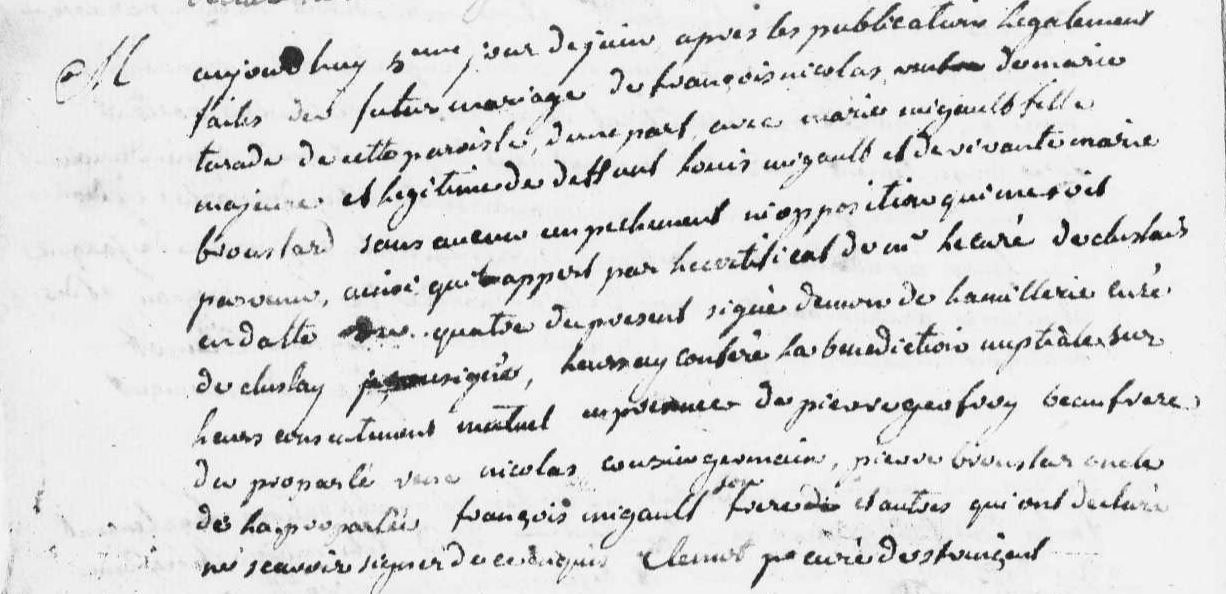 M aujourd huy 5 eme jour de juin apres les publications legalement
faites du futur mariage de françois nicolas de marie
tarade de cette paroisse, d'une part, avec marie migault fille
majeure et legitime de deffunt louis migault et de vivante marie
broustard sans aucun empechement ni opposition qui me soit
parvenu, ainsi qu'il appert par le certificat de mr le curé de
en datte quatre du present signé de curé
de soussigné, leurs ay conferé la benediction nuptiale sur
leurs consentement mutuel en presence de pierre geofroy beaufrere
du proparlé nicolas cousin germain, pierre broustar oncle
de la proparlée françois migault son frere et autres qui ont declaré
ne scavoir signer de ce enquis Clemot pr curé de